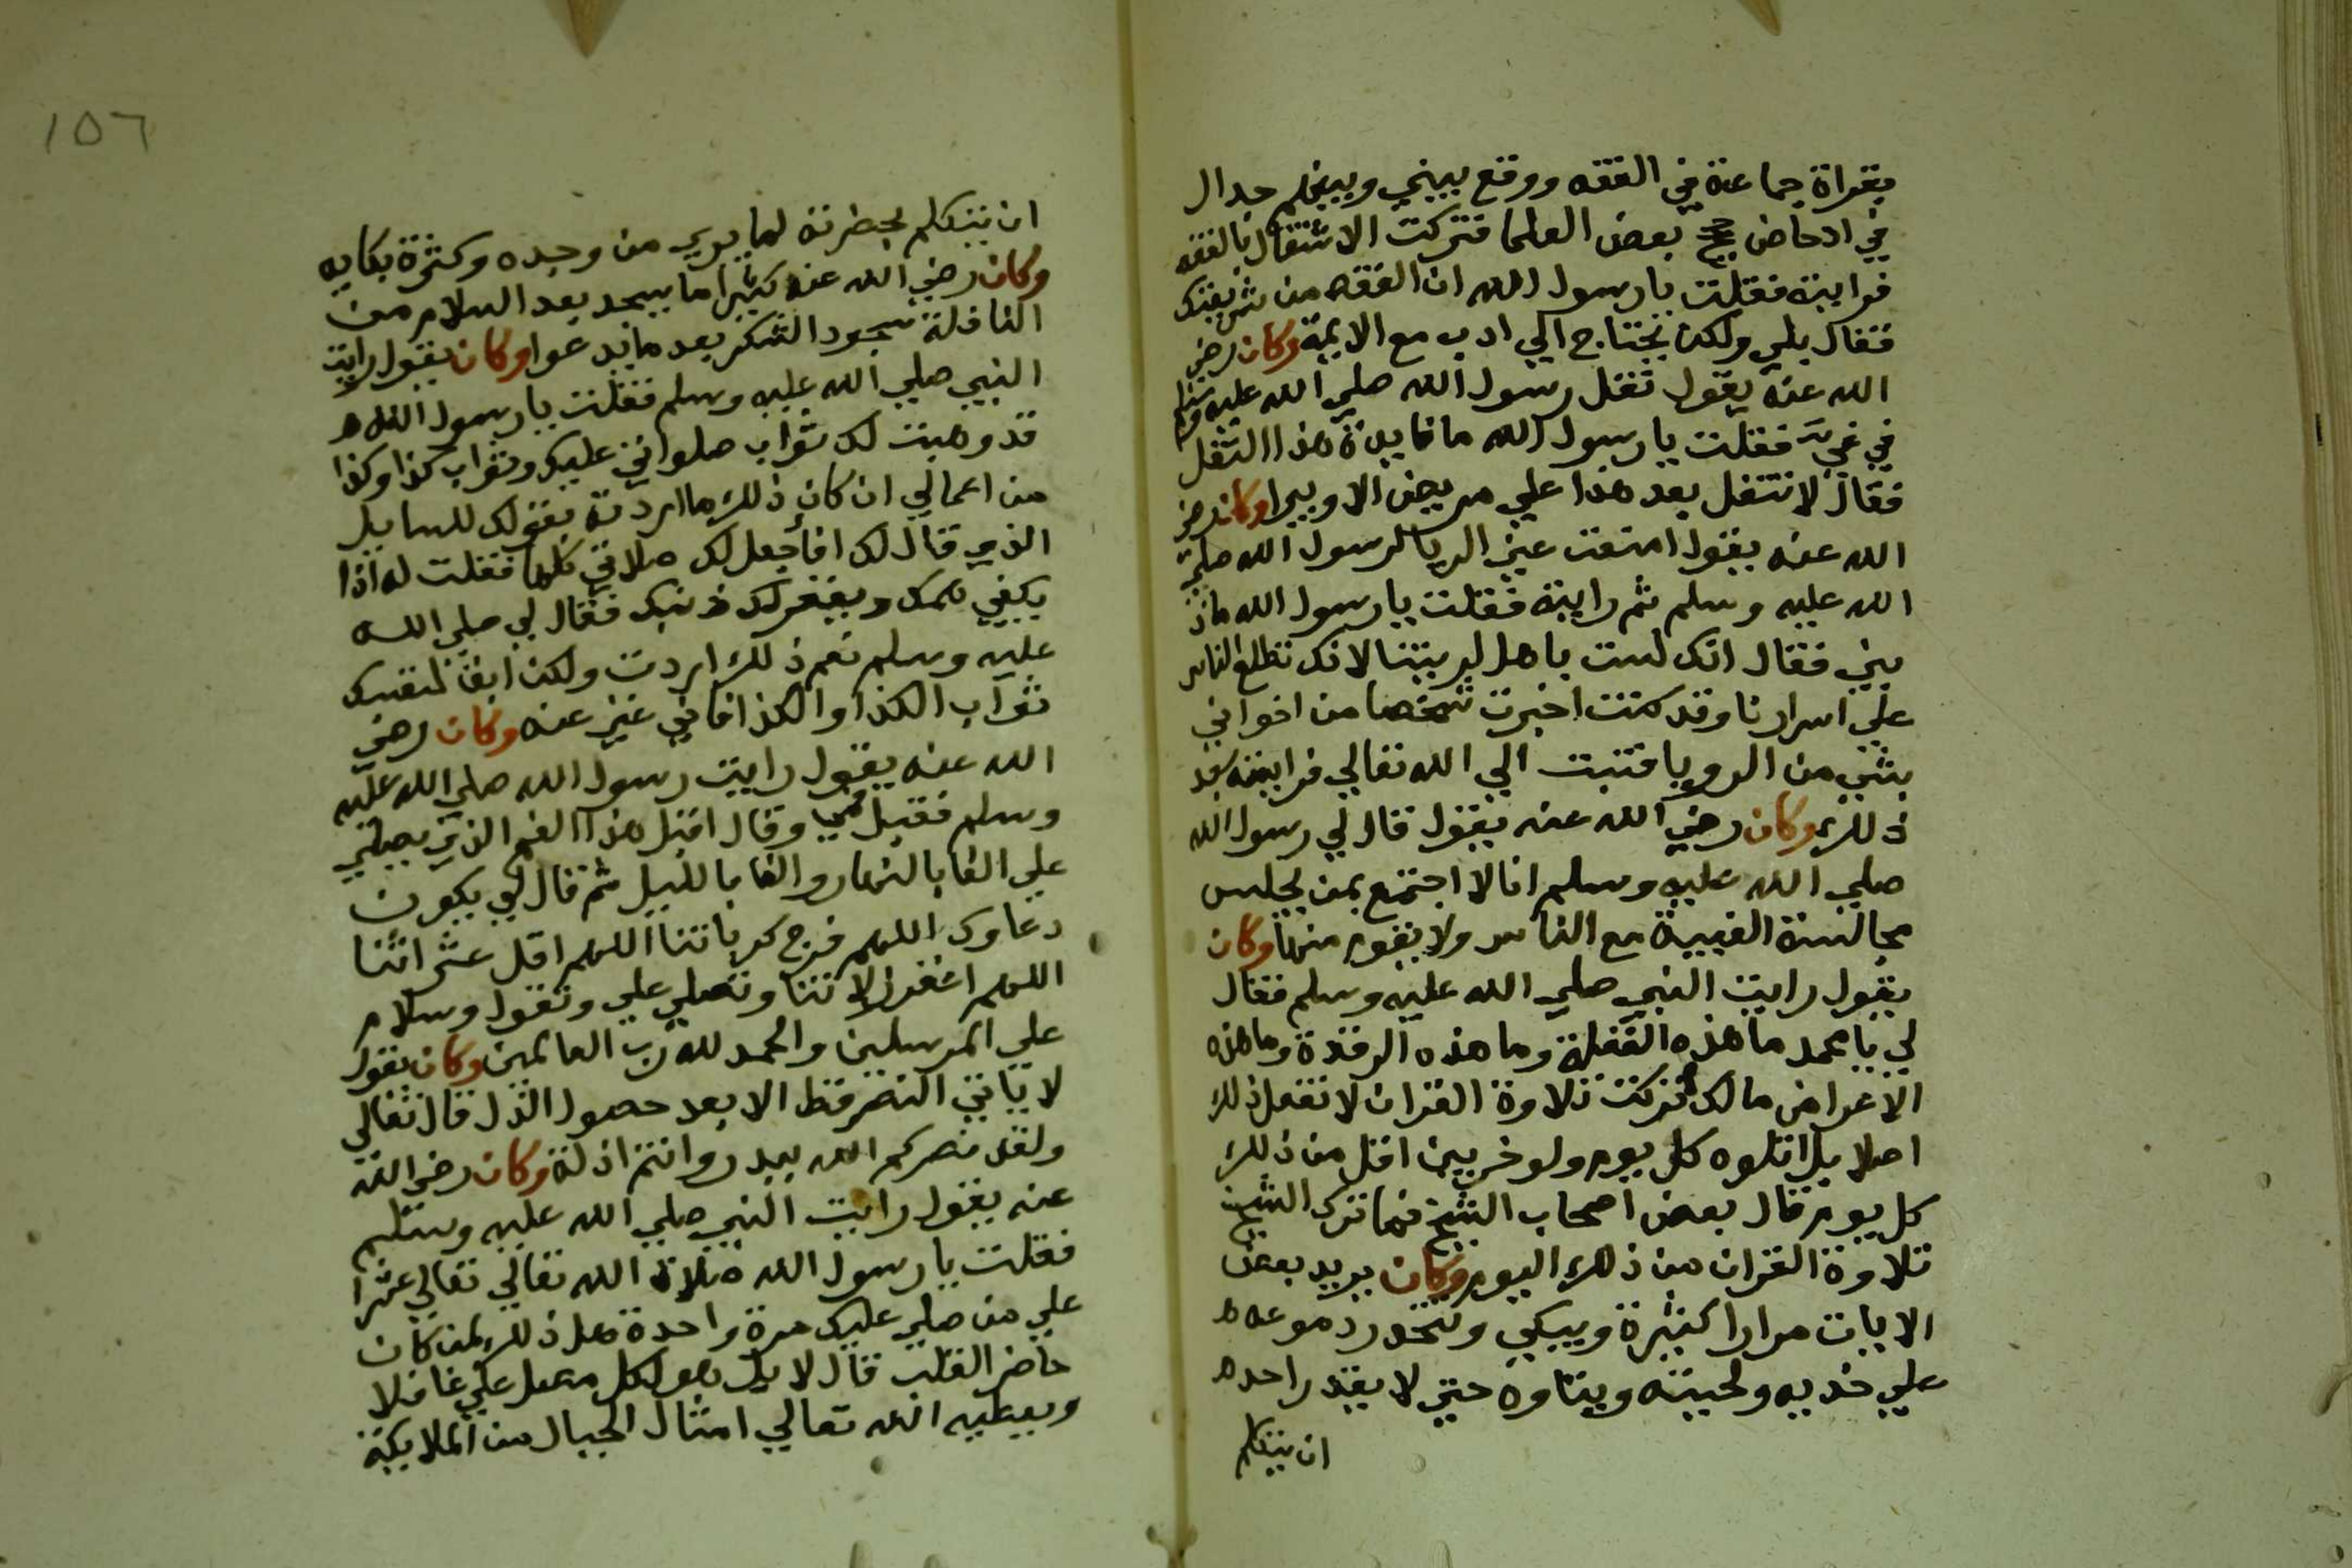 بقراة جماعة في الفقه ووقع بيني وبينهم جدال
في ادحاض حجج بعض العلما فتركت الاشتغال بالفقه
فرايته فقلت يا رسول الله ان الفقه من شريعتك
فقال بلي ولكن يحتاج الي ادب مع الايمة وكان رضي
الله عنه يقول تفل رسول الله صلي الله عليه وسلم
في فمي فقلت يا رسول الله ما فايدة هذا التفل
فقال لا تتفل بعد هذا علي مريض الا ويبرا وكان رضي
الله عنه يقول امتنعت عني الرويا لرسول الله صلي
الله عليه وسلم ثم رايته فقلت يا رسول الله ماذ
نبي فقال انك لست باهل لرويتنا لانك تطلع الناس
علي اسرارنا وقد كنت اخبرت شخصا من اخواني
بشي من الرويا فتبت الي الله تعالي فرايته بعد
ذلك وكان رضي الله عنه يقول قال لي رسول الله
صلي الله عليه وسلم انا لا اجتمع بمن يجلس
مجالسة الغيبة مع الناس ولا يقوم منها وكان
يقول رايت النبي صلي الله عليه وسلم فقال
لي يا محمد ما هذه الغفلة وما هذه الرقدة وما هذه
الاعراض مالك تركت تلاوة القران لا تفعل ذلك
اصلا بل اتلوه كل يوم ولو حزبين اقل من ذلك
كل يوم قال بعض اصحاب الشيخ فما ترك الشيخ
تلاوة القران من ذلك اليوم وكان يريد بعض
الايات مرارا كثيرة ويبكي وتتحدر دموعه
علي خديه ولحيته ويتاوه حتي لا يقدر احد
ان يتكلم
١٥٦
ان يتكلم بحضرته لما يري من وجده وكثرة بكايه
وكان رضي الله عنه كثيرا ما يسجد بعد السلام من
النافلة سجود الشكر بعد ما يدعوا وكان يقول رايت
النبي صلي الله عليه وسلم فقلت يا رسول الله
قد وهبت لك ثواب صلواتي عليك وثواب كذا وكذا
من اعمالي ان كان ذلك ما اردته بقولك للسايل
الذي قال لك افاجعل لك صلاتي كلها فقلت له اذا
يكفي همك ويغفر لك ذنبك فقال لي صلي الله
عليه وسلم نعم ذلك اردت ولكن ابق لنفسك
ثواب الكذا والكذا فاني غني عنه وكان رضي
الله عنه يقول رايت رسول الله صلي الله عليه
وسلم فقبل فمي وقال اقبل هذا الفم الذي يصلي
علي الفا بالنهار والفا بالليل ثم قال لي يكون
دعاوك اللهم فرج كرباتنا اللهم اقل عثراتنا
اللهم اغفر زلاتنا وتصلي علي وتقول وسلام
علي المرسلين والحمد لله رب العالمين وكان يقول
لا ياتي النصر قط الا بعد حصول الذل قال تعالي
ولقد نصركم الله ببدر وانتم اذلة وكان رضي الله
عنه يقول رايت النبي صلي الله عليه وسلم
فقلت يا رسول الله صلاة الله تعالي تعالي عشرا
علي من صلي عليك مرة واحدة هل ذلك لمن كان
حاضر القلب قال لا بل هو لكل مصل علي غافلا
ويعطيه الله تعالي امثال الجبال من الملايكة